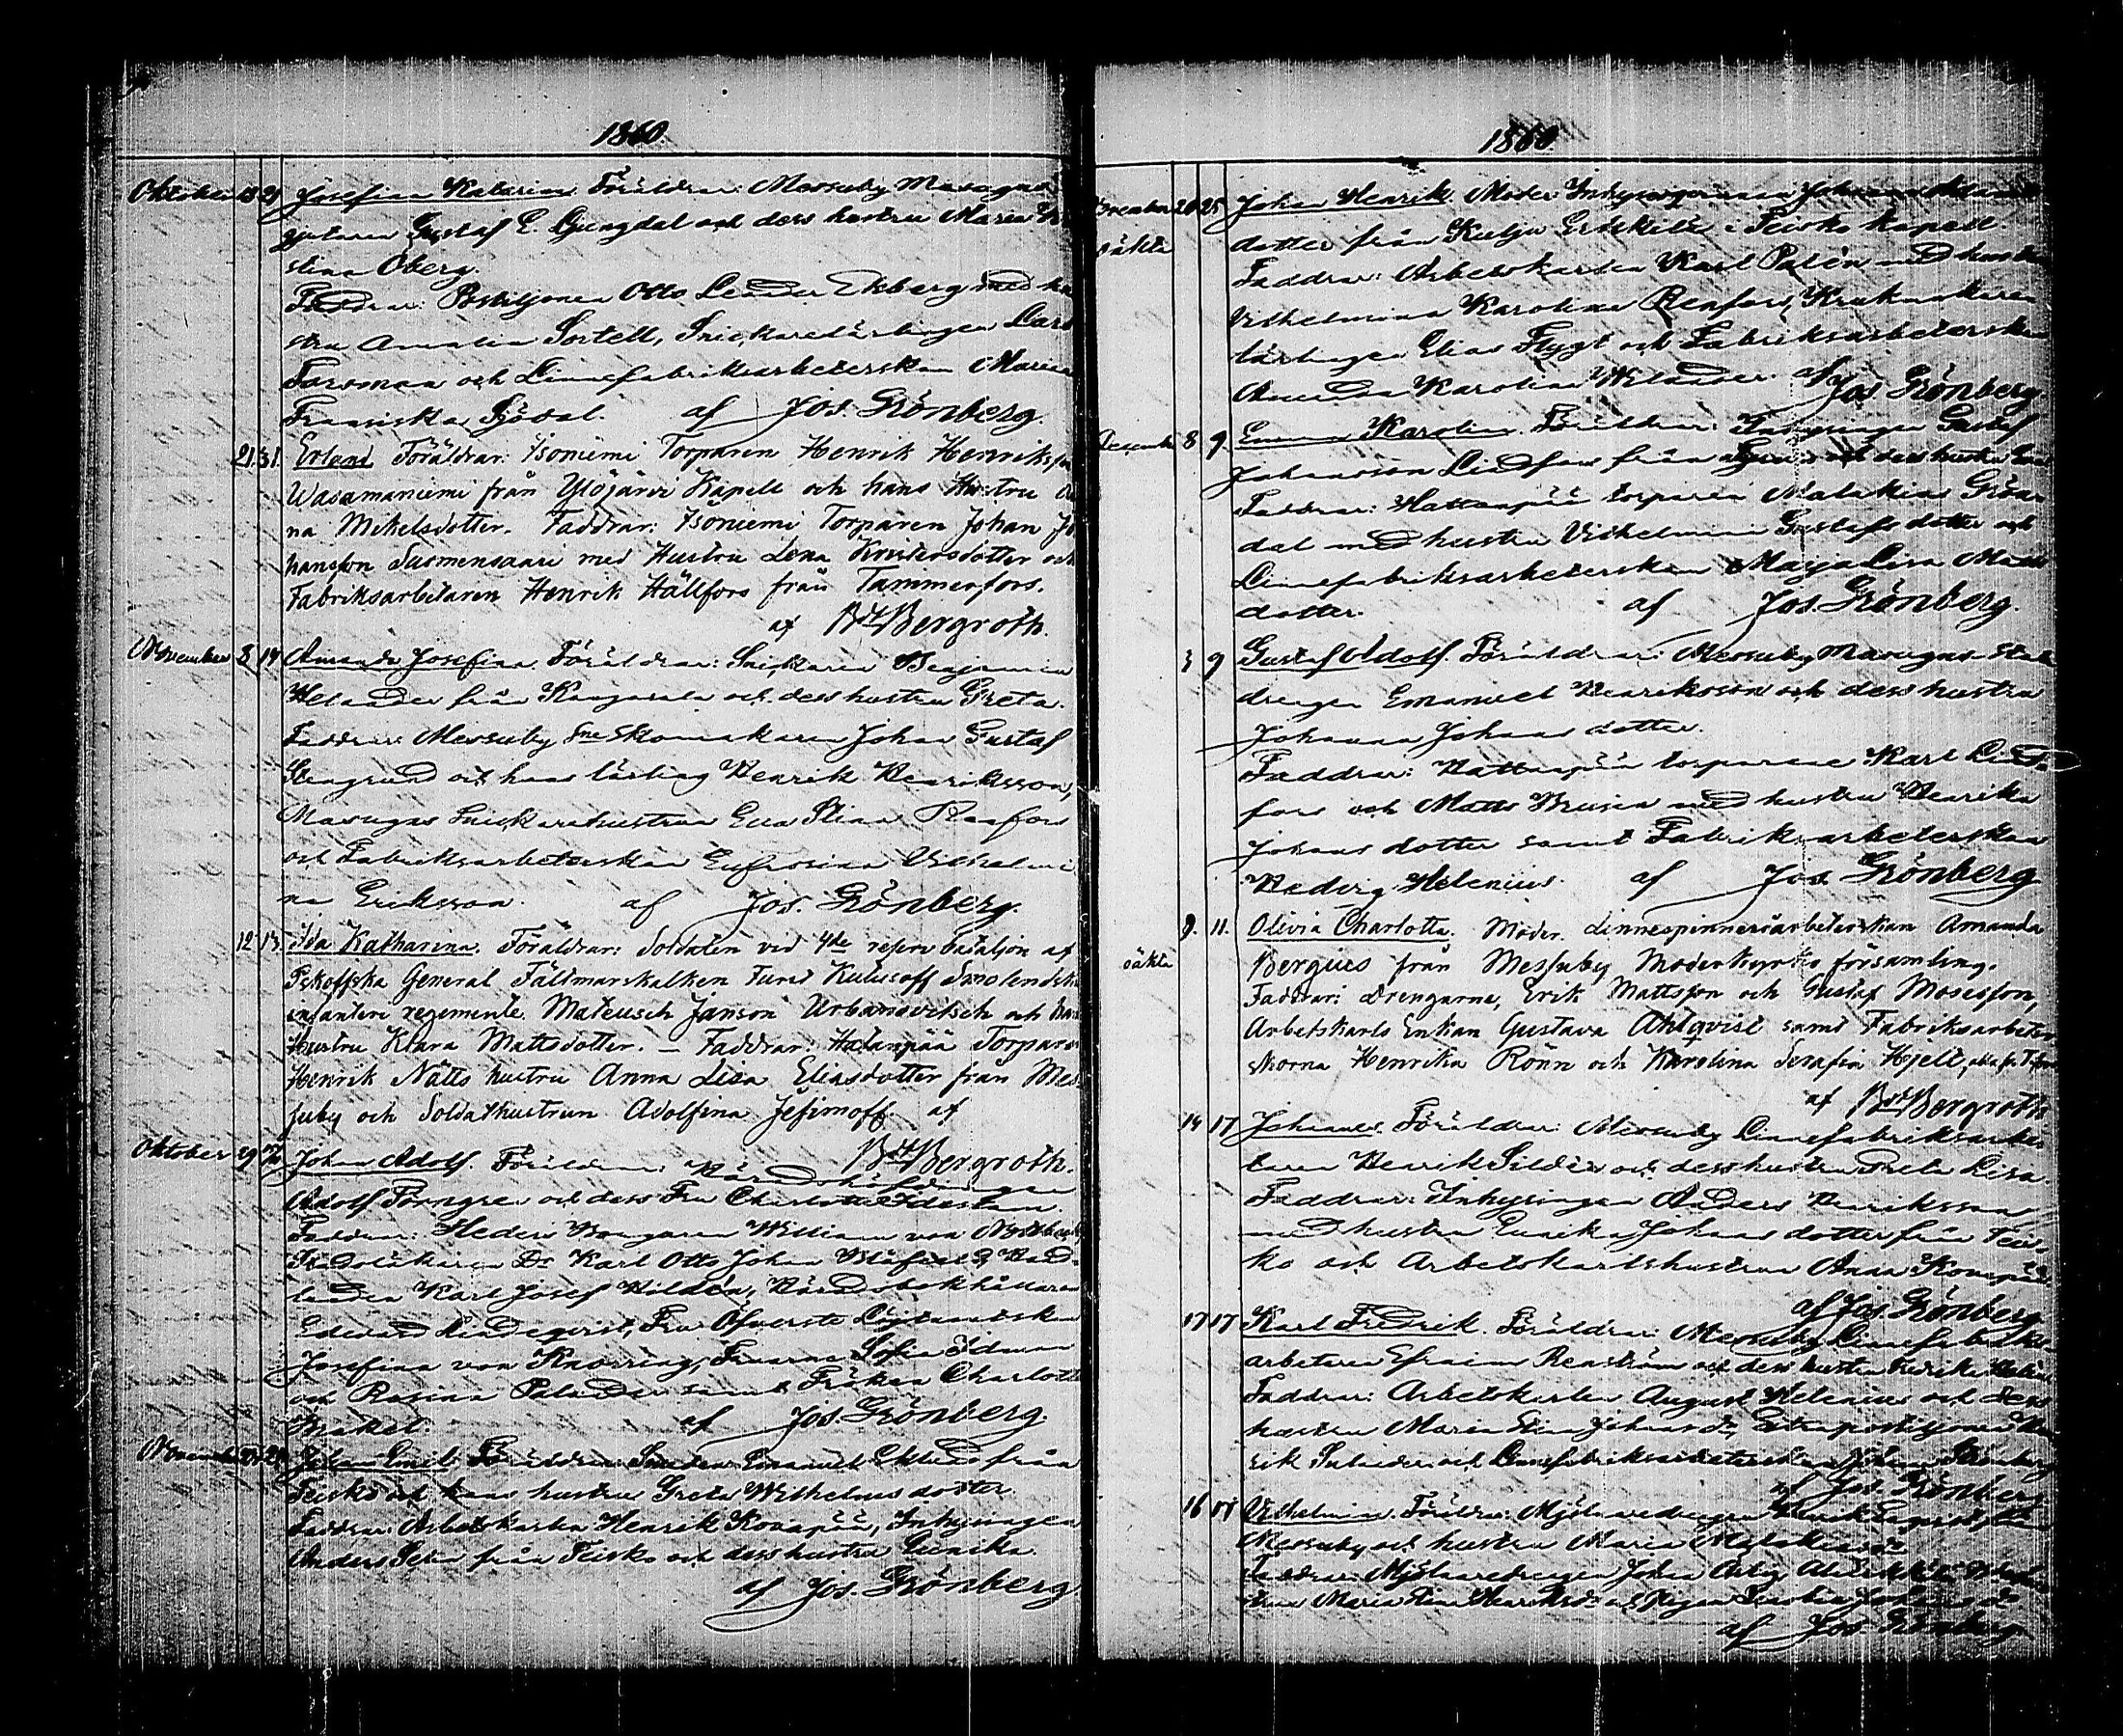 1860.
Oktober 13 21 Josefina Katarina. Föräldrar: Messuby Masugns
gjutaren Gustaf E. Ljungdal och dess hustru Maria
stina Öberg.
Faddrar: Postiljonen Otto Leander Ekberg med hu
stru Amalia Sortell, Snickarelärlingen Lars
Forsman och Linnefabriksarbeterskan Maria
Fransiska Sjödal. af Jos. Grönberg.
21. 31. Erland Föräldrar: Isoniemi Torparen Henrik Henriksson
Wasamaniemi från Ylöjärvi Kapell och hans Hustru
na Mikelsdotter. Faddrar: Isoniemi Torparen Johan Jo
hansson Susmensaari med Hustru Lena Kristersdotter och
Fabriksarbetaren Henrik Hällfors från Tammerfors.
af Bergroth.
November 8 14 Amanda Josefina. Föräldrar: Snickaren Benjamin
Helander från Kangasala och dess hustru Greta.
Faddrar: Messuby Sne Skomakaren Johan Gustaf
Stengrund och hans lärling Henrik Henriksson,
Masugns Snickarehustrun Eva Stina Renfors
och Fabriksarbeterskan Eufrosina Vilhelmi
na Eriksson. af Jos. Grönberg.
12. 13. Ida Katharina. Föräldrar: Soldaten vid 4de reserv bataljon af
Pskoffska General Fältmarskalken Furst Kutusoff Smolenski
infanteri regemente Mateusch Janson Urbanovitsch och hans
Hustru Klara Mattsdotter. – Faddrar: Hatanpää Torparen
Henrik Nätts hustru Anna Lisa Eliasdotter från Mes
suby och Soldathustrun Adolfina Jefimoff. af
Bergroth.
Oktober 29 Johan Adolf. Föräldrar: Häradshöfdingen
Adolf Törngren och dess Fru Charlotta Idestam.
Faddrar: Herrar Kongaren William von Nottbeck
Stadsläkaren Dr Karl Otto Johan Blåfield, Hand
landen Karl Josef Hildén, Häradsbokhållaren
Edvard Lindeqvist, Fru Öfverste Löjtnantskan
Josefina von Knorring, Fruarna Sofia Idman
och Rosina Palander samt Fröken Charlotta
af Jos. Grönberg
November Johan Emil. Föräldrar: Smeden Emanuel Eklund från
Teisko och hans hustru Greta Wilhelmsdotter.
Faddrar: Arbetskarlen Henrik Kovapää, Inhysingen
Anders från Teisko och dess hustru Eunika.
af Jos. Grönberg
1860
November 20 25 Johan Henrik. Moder: Inhysespigan Johanna
oäkta dotter från Kulju Erikkilä i Teisko kapell.
Faddrar: Arbetskarlen Karl Palén med hustru
Vilhelmina Karolina Renfors, Krukmakare
lärlingen Elias Flygt och Fabriksarbeterskan
Amanda Karolina Helander. af Jos. Grönberg
December 8 9. Emma Karolina. Föräldrar: Inhysingen Gustaf
Johansson Lindfors från och dess hustru
Faddrar: Hattanpää torparen Malakias Grön
dal med hustru Vilhelmina Gustafsdotter och
Linnefabriksarbeterskan Maja Lisa Matts
dotter. af Jos. Grönberg.
3 9 Gustaf Adolf. Föräldrar: Messuby Masugns Stall
drengen Emanuel Henriksson och dess hustru
Johanna Johansdotter.
Faddrar: Hattanpää torparene Karl Lind
fors och Matts Brusin med hustru Henrika
Johansdotter samt Fabriksarbeterskan
Hedvig Helenius. af Jos. Grönberg
9. 11. Olivia Charlotta. Moder. Linnespinneriarbeterskan Amanda
oäkta Bergius från Messuby Moderkyrko församling.
Faddrar: Drengarna, Erik Mattsson och Gustaf Mosesson,
Arbetskarls Enkan Gustava Ahlqvist samt Fabriksarbeter
skorna Henrika Rönn och Karolina Serafia Hjelt,
af Bergroth
14 17 Johannes. Föräldrar: Messuby Linnefabriksarbe
taren Henrik Sildén och dess hustru Greta Lisa.
Faddrar: Inhysingen Anders Henriksson
med hustru Eunika Johansdotter från Teis
ko och Arbetskarlshustrun Anna Kovapää.
af Jos. Grönberg
17 17 Karl Fredrik. Föräldrar: Messuby Linnefabriks
arbetaren Efraim Renström och dess hustru Fredrika
Faddrar: Arbetskarlen August Helenius och dess
hustru Maria Stina Johansdr, Extrapostiljonen Hen
rik och Linnefabriksarbeterskan Johanna Grönberg
af Jos. Grönberg
16 Vilhelmina. Föräldrar: Mjölnaredrengen Henrik
Messuby och hustru Maria
Faddrar: Mjölnaredrengen Johan
strun Maria Lena Henriksdr och Pigan
af Jos. Grönberg